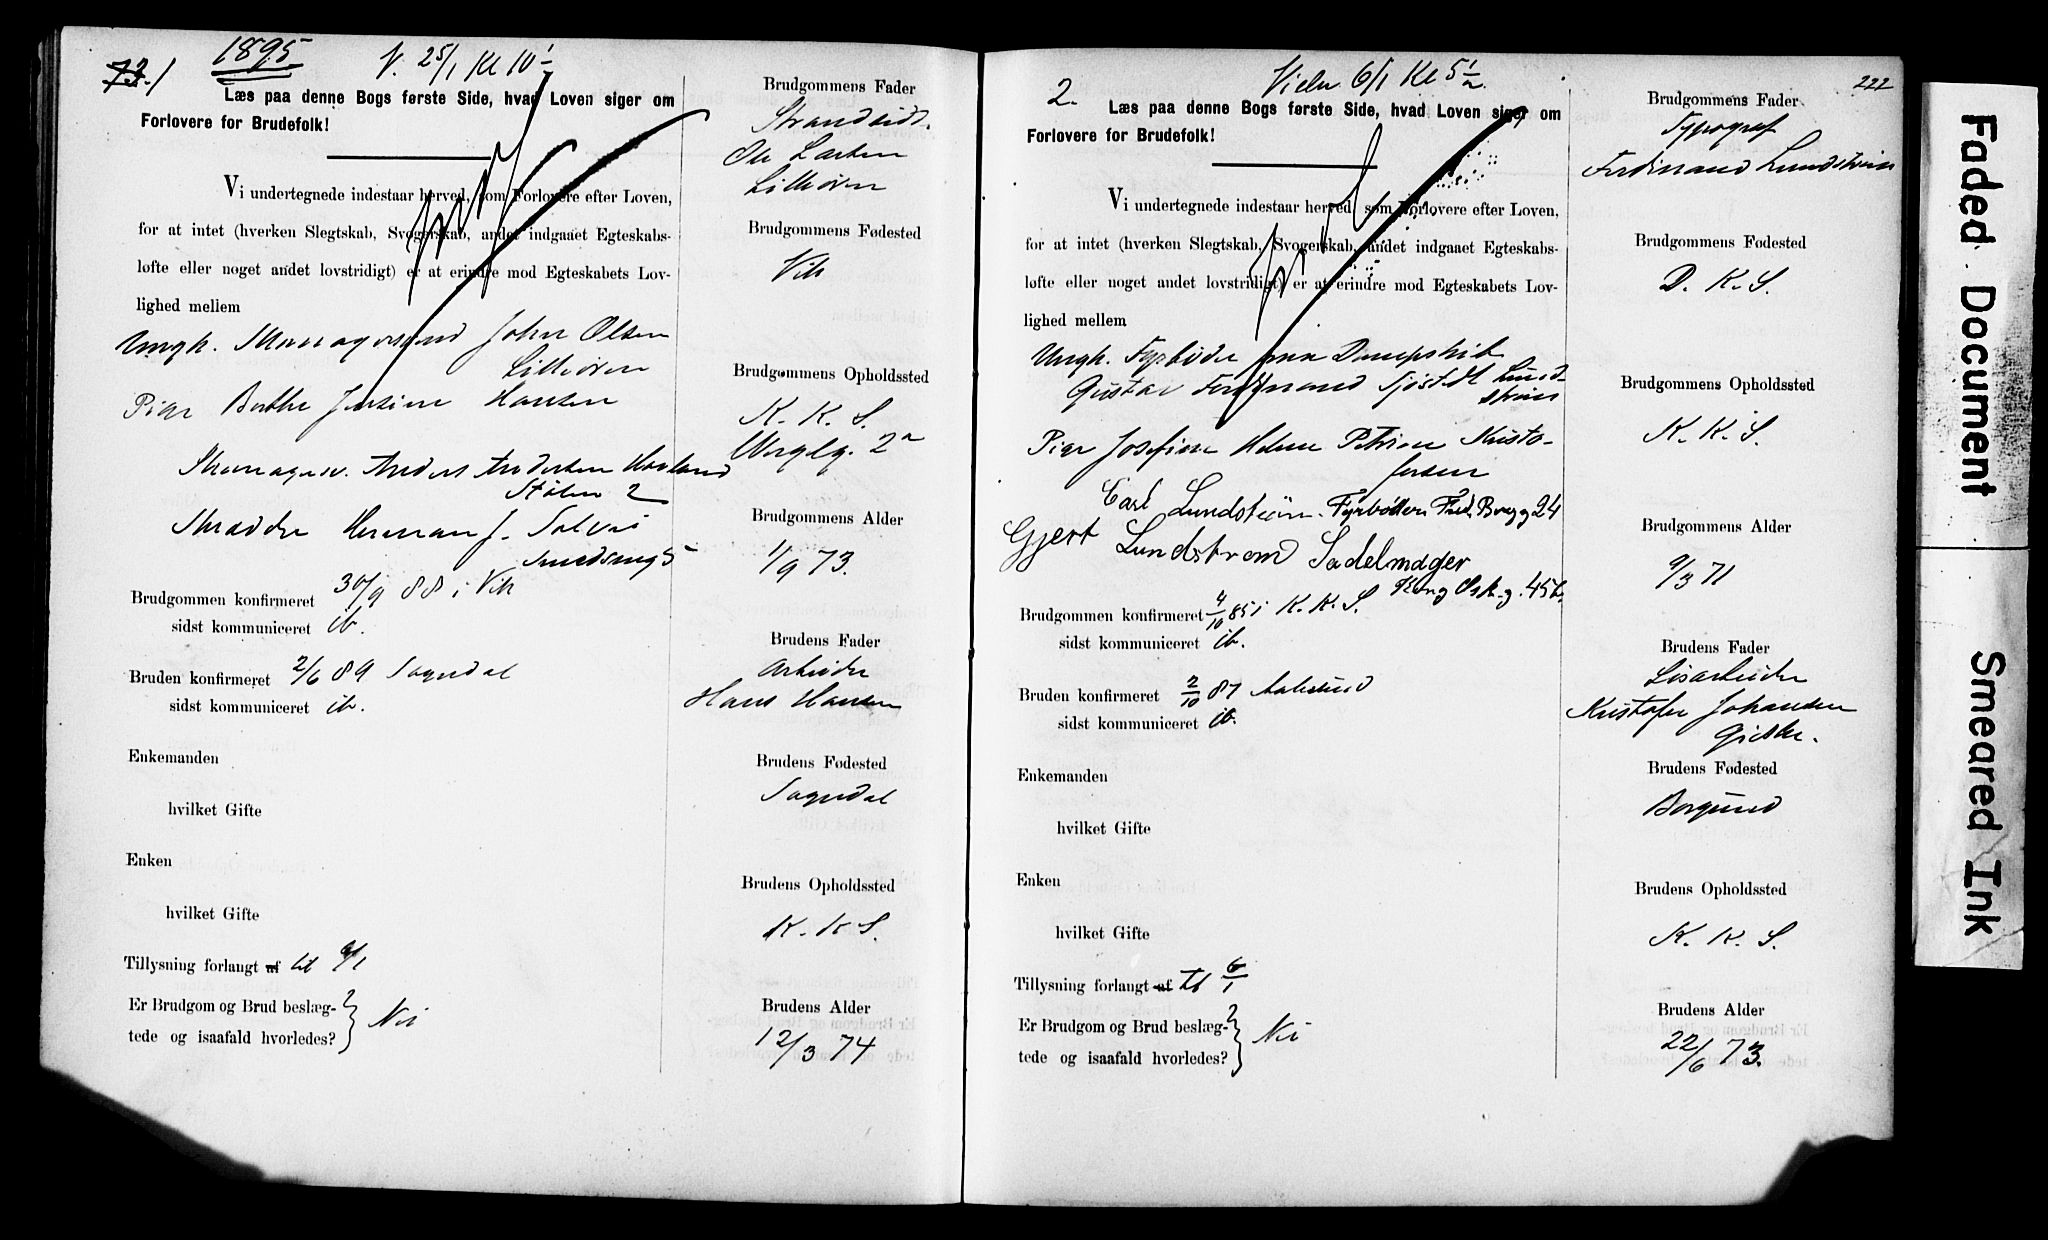 73. 1
1895
V. 25/1 Kl 10 1/2
Læs paa denne Bogs første Side, hvad Loven siger om
Forlovere for Brudefolk!
Vi undertegnede indestaar herved, som Forlovere efter Loven,
for at intet (hverken Slegtskab, Svogerskab, andet indgaaet Egteskabs-
løfte eller noget andet lovstridigt) er at erindre mod Egteskabets Lov-
lighed mellem
Ungk. John Olsen
Lilleøren
Pige Berthe Jensine Hansen
Anders Andersen
Stølen 2
Skrædder Herman J.
Brudgommen konfirmeret 30/9 88 i Vik
sidst kommuniceret ib.
Bruden konfirmeret 2/6 89 Sogndal
sidst kommuniceret ib.
Enkemanden
hvilket Gifte
Enken
hvilket Gifte
Tillysning forlangt af til 6/1
Er Brudgom og Brud beslæg-
tede og isaafald hvorledes? } Nei
Brudgommens Fader
Strandsidd.
Ole Larsen
Lilleøren
Brudgommens Fødested
Vik
Brudgommens Opholdssted
K. K. S.
Brudgommens Alder
1/9 73.
Brudens Fader
Arbeider
Hans Hansen
Brudens Fødested
Sogndal
Brudens Opholdssted
K. K S.
Brudens Alder
12/3 74
2.
Vielse 6/1 Kl 5 1/2.
222
Læs paa denne Bogs første Side, hvad Loven siger om
Forlovere for Brudefolk!
Vi undertegnede indestaar herved, som Forlovere efter Loven,
for at intet (hverken Slegtskab, Svogerskab, andet indgaaet Egteskabs-
løfte eller noget andet lovstridigt) er at erindre mod Egteskabets Lov-
lighed mellem
Ungk. Fyrbøder paa Dampskib
Gustav Ferdinand Sjøstedt Lund-
strøm
Pige Josefine Helene Petrine Kristo-
fersen
Carl Lundström. Fyrbötter Fred. Brygg 24
Gjert Lundstrøm Sadelmager
Kong Osk. g. 45 b.
Brudgommen konfirmeret 4/10 85 i K. K. S.
sidst kommuniceret ib.
Bruden konfirmeret 2/10 87 Aalesund
sidst kommuniceret ib.
Enkemanden
hvilket Gifte
Enken
hvilket Gifte
Tillysning forlangt af til 6/1
Er Brudgom og Brud beslæg-
tede og isaafald hvorledes? } Nei
Brudgommens Fader
Typograf
Ferdinand Lundstrøm
Brudgommens Fødested
D. K. S.
Brudgommens Opholdssted
K. K. S.
Brudgommens Alder
9/3 71
Brudens Fader
Løsarbeider
Kristofer Johansen
Giske.
Brudens Fødested
Borgund
Brudens Opholdssted
K. K. S.
Brudens Alder
22/6 73.
Faded Document
Smeared Ink